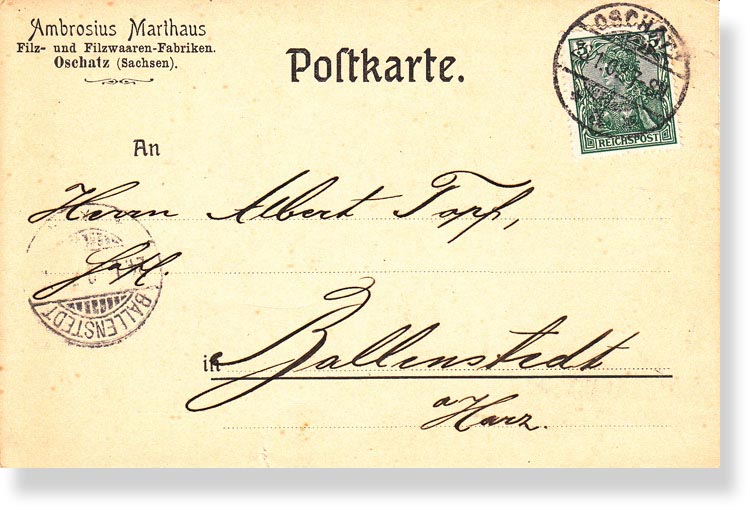 Ambrosius Marthaus
Filz- und Filzwaaren-Fabriken.
Oschatz (Sachsen).
Poſtkarte.
OSCHATZ
5
5
REICHSPOST
An
Herrn Albert Topf,
BALLENSTEDT
in Ballenstedt
a Harz.